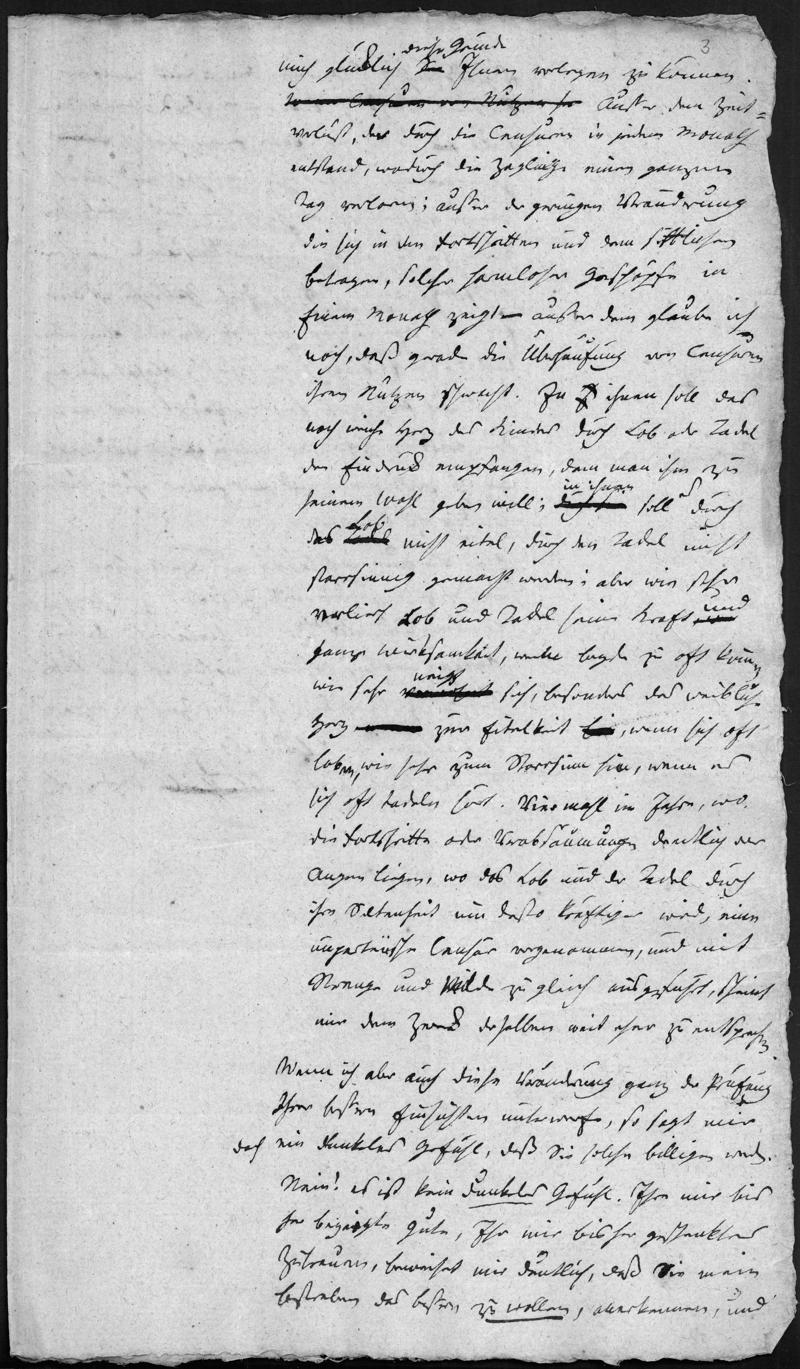 3
diese Gründe
mich glücklich Ihnen vorlegen zu können.
Ausser dem Zeit=
verlust, der durch die Censuren in jedem Monath
entstand, wodurch die Zöglinge einen ganzen
Tag verloren; ausser der geringen Veränderung
die sich in den Fortschritten und dem sittlichen
betragen, solcher harmloser Geschöpfe in
Einem Monath zeigt – ausser dem glaube ich
noch, daß grade die Überhäufung von Censuren
ihren Nutzen schwächt. In ihnen soll das
noch weiche Herz des Kindes durch Lob oder Tadel
den Eindruck empfangen, dem man ihm zu
seinem Wohl geben will; in ihnen soll es durch
das Lob nicht eitel, durch den Tadel nicht
starrsinnig gemacht werden; aber wie sehr
verliert Lob und Tadel seine Kraft und
ganze Wirksamkeit, wenn beyde zu oft kommen,
wie sehr neigt sich, besonders das weibliche
Herz zur Eitelkeit hin, wenn sich oft
loben, wie sehr zum Starrsinn hin, wenn es
sich oft tadeln hört. Viermahl im Jahre, wo
die Fortschritte oder Verabsäumungen deutlich vor
Augen liegen, wo das Lob und der Tadel durch
ihre Seltenheit um desto kräftiger wird, eine
unparteiische Censur vorgenommen, und mit
Strenge und Milde zugleich ausgeführt, scheint
mir dem Zweck derselben weit eher zu entsprechen.
Wenn ich aber auch diese Veränderung ganz der Prüfung
Ihrer bessern Einsichten unterwerfe, so sagt mir
doch ein dunkeles Gefühl, daß Sie solche billigen werden.
Nein! es ist kein dunkeles Gefühl. Ihre mir bis
her bezeigte Güte, Ihr mir bisher geschenktes
Zutrauen, beweiset mir deutlich, daß Sie mein
bestreben das bessere zu wollen, anerkennen, und